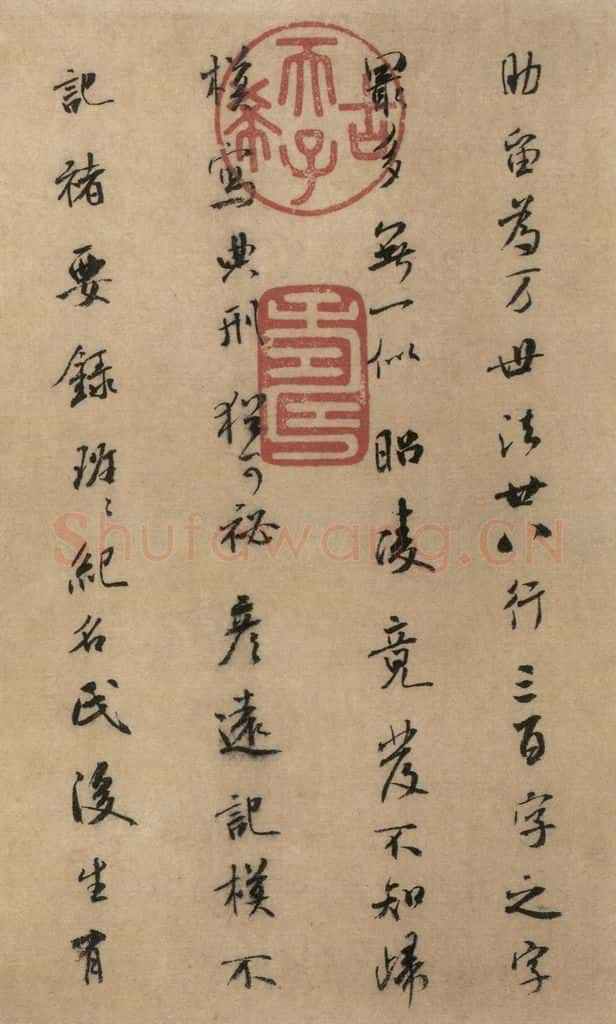 助留為万世法廿八行三百字之字
最多無一似昭陵竟發不知歸
模寫典刑猶可祕彦遠記模不
記褚要錄班〻紀名氏後生有
古希天子
壽
Shufawang.CN